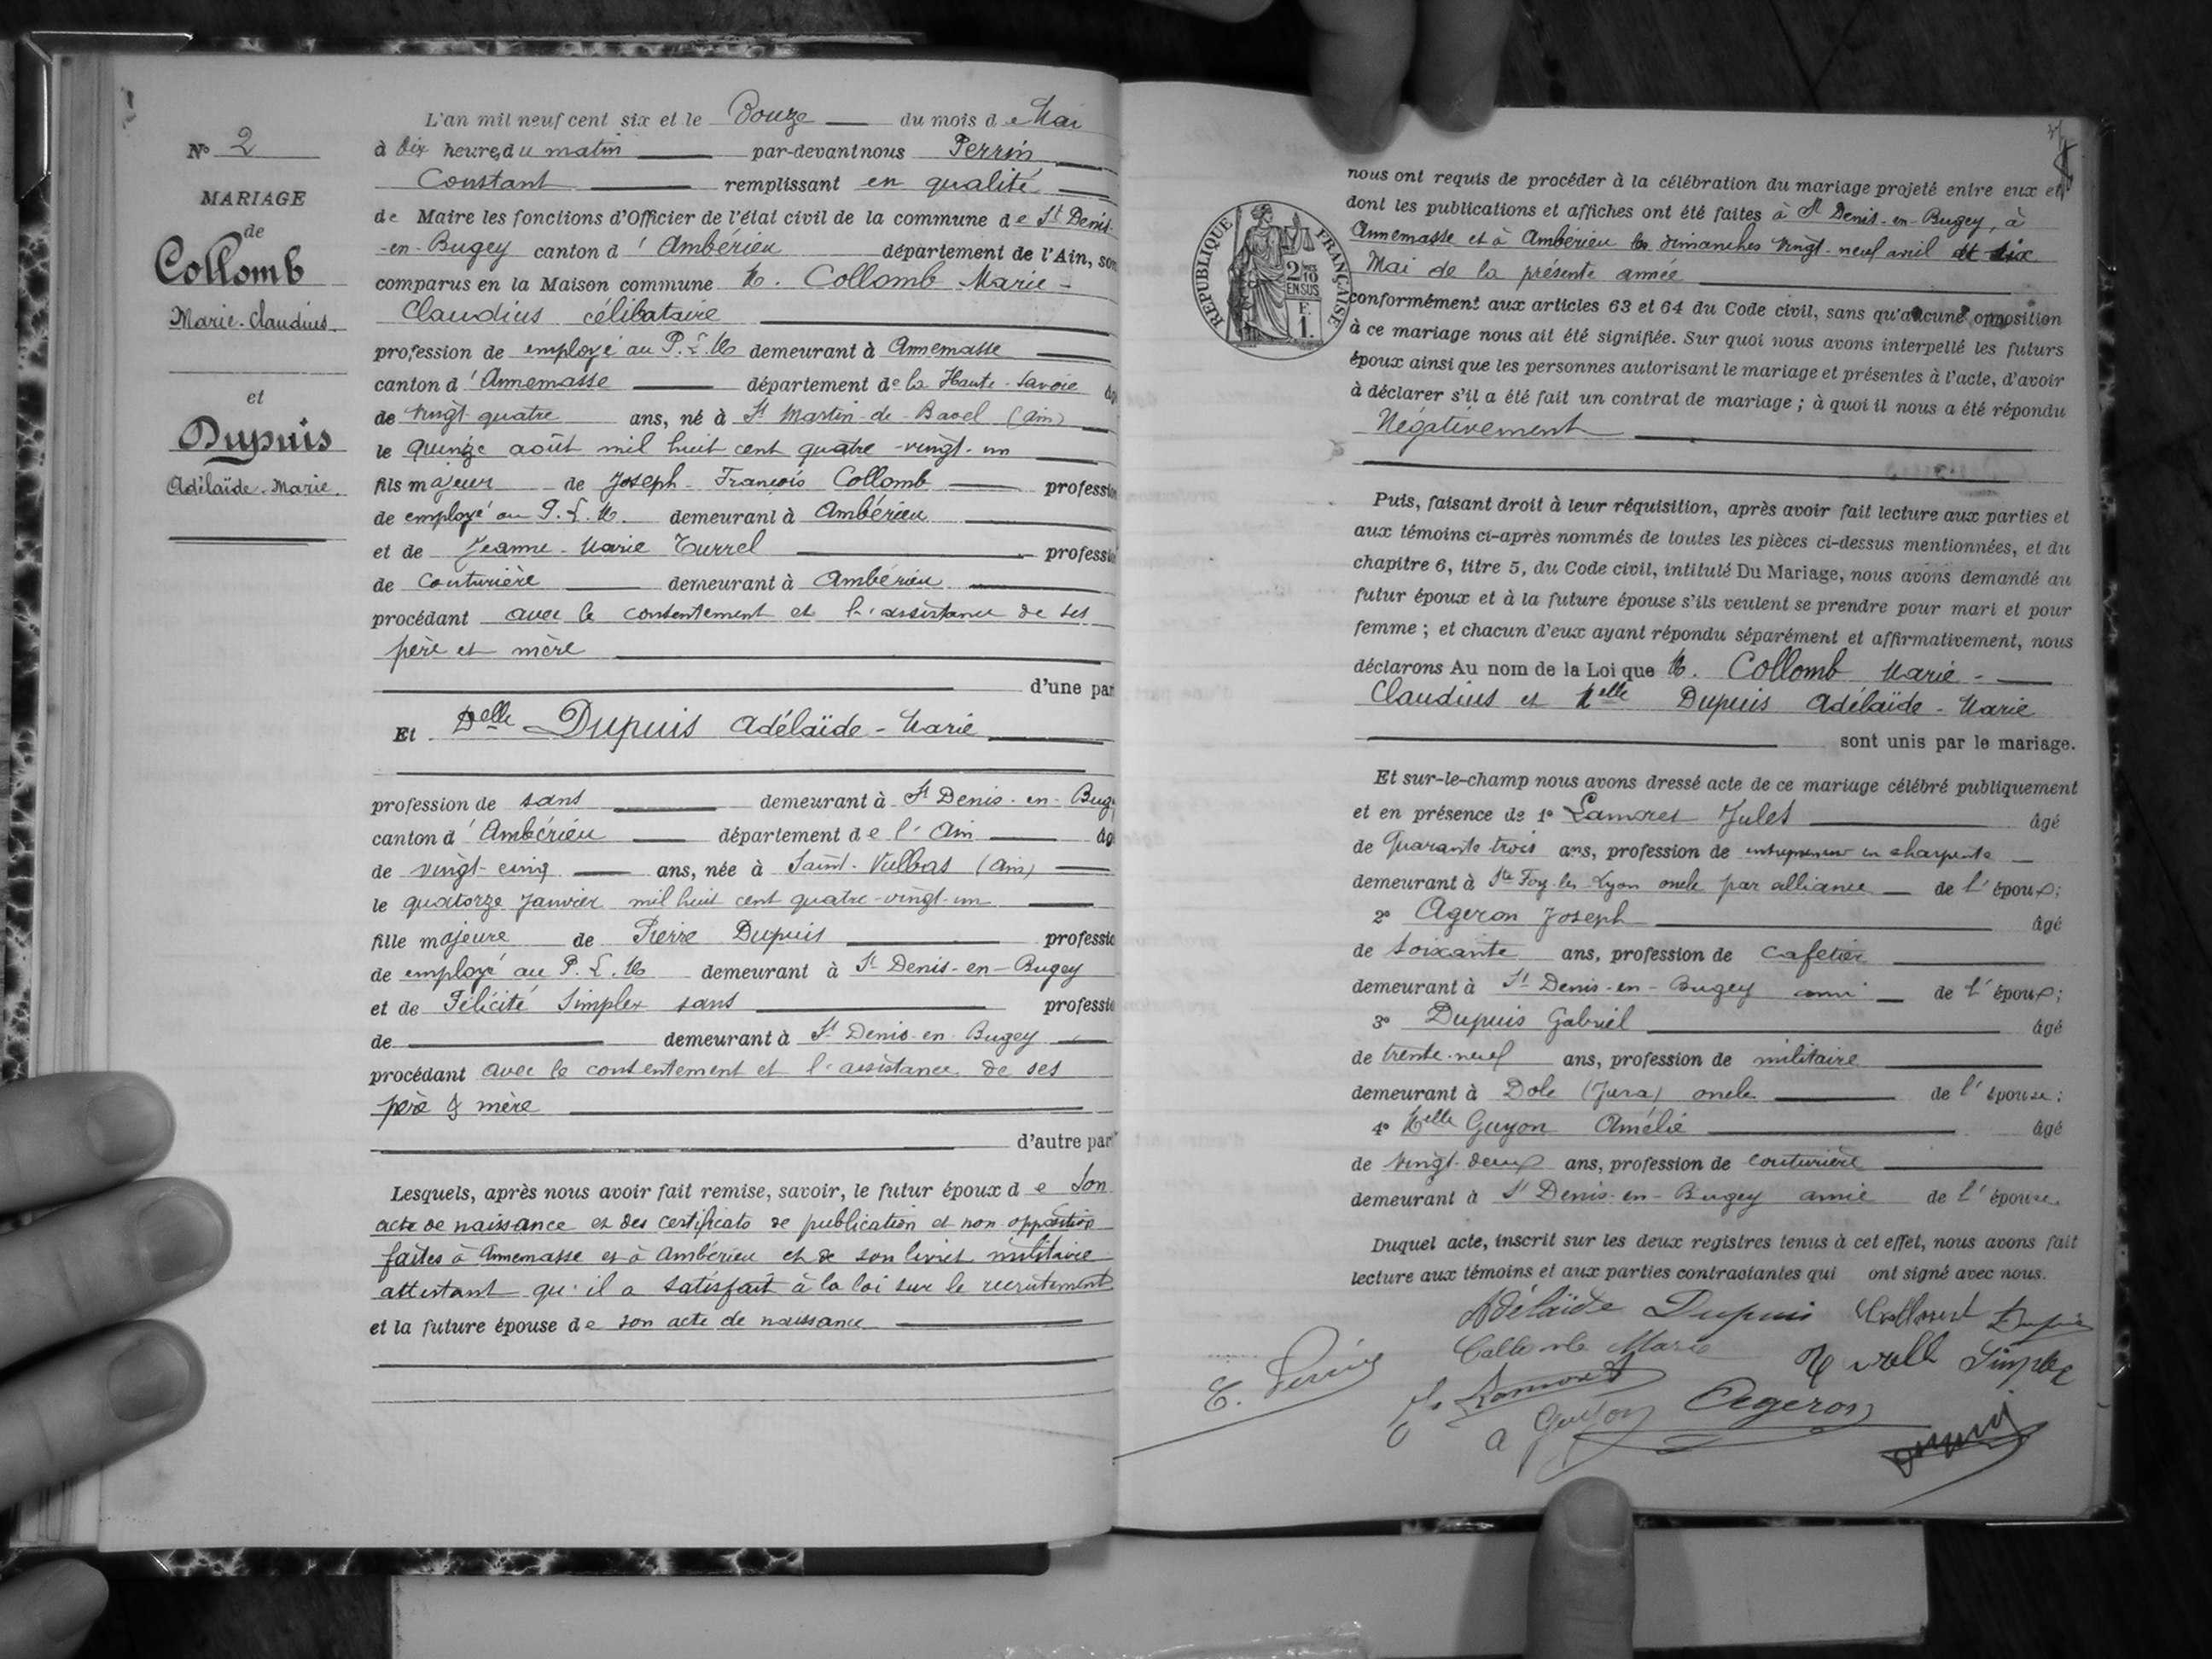 N° 2
MARIAGE
de
Collomb
Marie-Claudius
et
Dupuis
Adélaïde-Marie
L'an mil neuf cent six et le Douze du mois de Mai
à dix heures du matin par-devant nous Perrin
Constant remplissant en qualité
de Maire les fonctions d'Officier de l'état civil de la commune de St Denis-
-en-Bugey canton d'Ambérieu département de l'Ain, son
comparus en la Maison commune M. Collomb Marie-
Claudius célibataire
profession de employé au P.L.M demeurant à Annemasse
canton d'Annemasse département de la Haute-Savoie âg
de vingt quatre ans, né à St Martin-de-Bavel (Ain)
le quinze août mil huit cent quatre-vingt-un
fils majeur de Joseph-François Collomb professio
de employé au P.L.M. demeurant à Ambérieu
et de Jeanne-Marie Turrel professio
de couturière demeurant à Ambérieu
procédant avec le consentement et l'assistance de ses
père et mère
d'une par
Et Delle Dupuis Adélaïde-Marie
profession de sans demeurant à St Denis-en-Bug
canton d'Ambérieu département de l'Ain âg
de vingt-cinq ans, née à Saint-Vulbas (Ain)
le quatorze Janvier mil huit cent quatre-vingt-un
fille majeure de Pierre Dupuis professio
de employé au P.L.M demeurant à St Denis-en-Bugey
et de Félicité Simplex sans professio
de demeurant à St Denis-en-Bugey
procédant avec le consentement et l'assistance de ses
père & mère
d'autre part
Lesquels, après nous avoir fait remise, savoir, le futur époux de Son
acte de naissance et des certificats de publication et non opposition
faites à Annemasse et à Ambérieu et de son livret militaire
attestant qu'il a satisfait à la loi sur le recrutement
et la future épouse de son acte de naissance
nous ont requis de procéder à la célébration du mariage projeté entre eux et
dont les publications et affiches ont été faites à St Denis-en-Bugey, à
Annemasse et à Ambérieu les dimanches vingt-neuf avril et six
Mai de la présente année
RÉPUBLIQUE FRANÇAISE
2/10 EN SUS
F. 1.
conformément aux articles 63 et 64 du Code civil, sans qu'aucune opposition
à ce mariage nous ait été signifiée. Sur quoi nous avons interpellé les futurs
époux ainsi que les personnes autorisant le mariage et présentes à l'acte, d'avoir
à déclarer s'il a été fait un contrat de mariage ; à quoi il nous a été répondu
Négativement
Puis, faisant droit à leur réquisition, après avoir fait lecture aux parties et
aux témoins ci-après nommés de toutes les pièces ci-dessus mentionnées, et du
chapitre 6, titre 5, du Code civil, intitulé Du Mariage, nous avons demandé au
futur époux et à la future épouse s'ils veulent se prendre pour mari et pour
femme ; et chacun d'eux ayant répondu séparément et affirmativement, nous
déclarons Au nom de la Loi que M. Collomb Marie-
Claudius et Melle Dupuis Adélaïde-Marie
sont unis par le mariage.
Et sur-le-champ nous avons dressé acte de ce mariage célébré publiquement
et en présence de 1° Lamoret Jules âgé
de Quarante trois ans, profession de entrepreneur en charpente
demeurant à Ste Foy-les-Lyon oncle par alliance de l'époux;
2° Ageron Joseph âgé
de soixante ans, profession de cafetier
demeurant à St Denis-en-Bugey ami de l'époux;
3° Dupuis Gabriel âgé
de trente-neuf ans, profession de militaire
demeurant à Dole (Jura) oncle de l'épouse;
4° Melle Guyon Amélie âgé
de vingt-deux ans, profession de couturière
demeurant à St Denis-en-Bugey amie de l'épouse.
Duquel acte, inscrit sur les deux registres tenus à cet effet, nous avons fait
lecture aux témoins et aux parties contractantes qui ont signé avec nous.
Adélaïde Dupuis Collomb Dupuis
Collomb Marie Simplex
C. Perrin
J. Lamoret
a Guyon Ageron